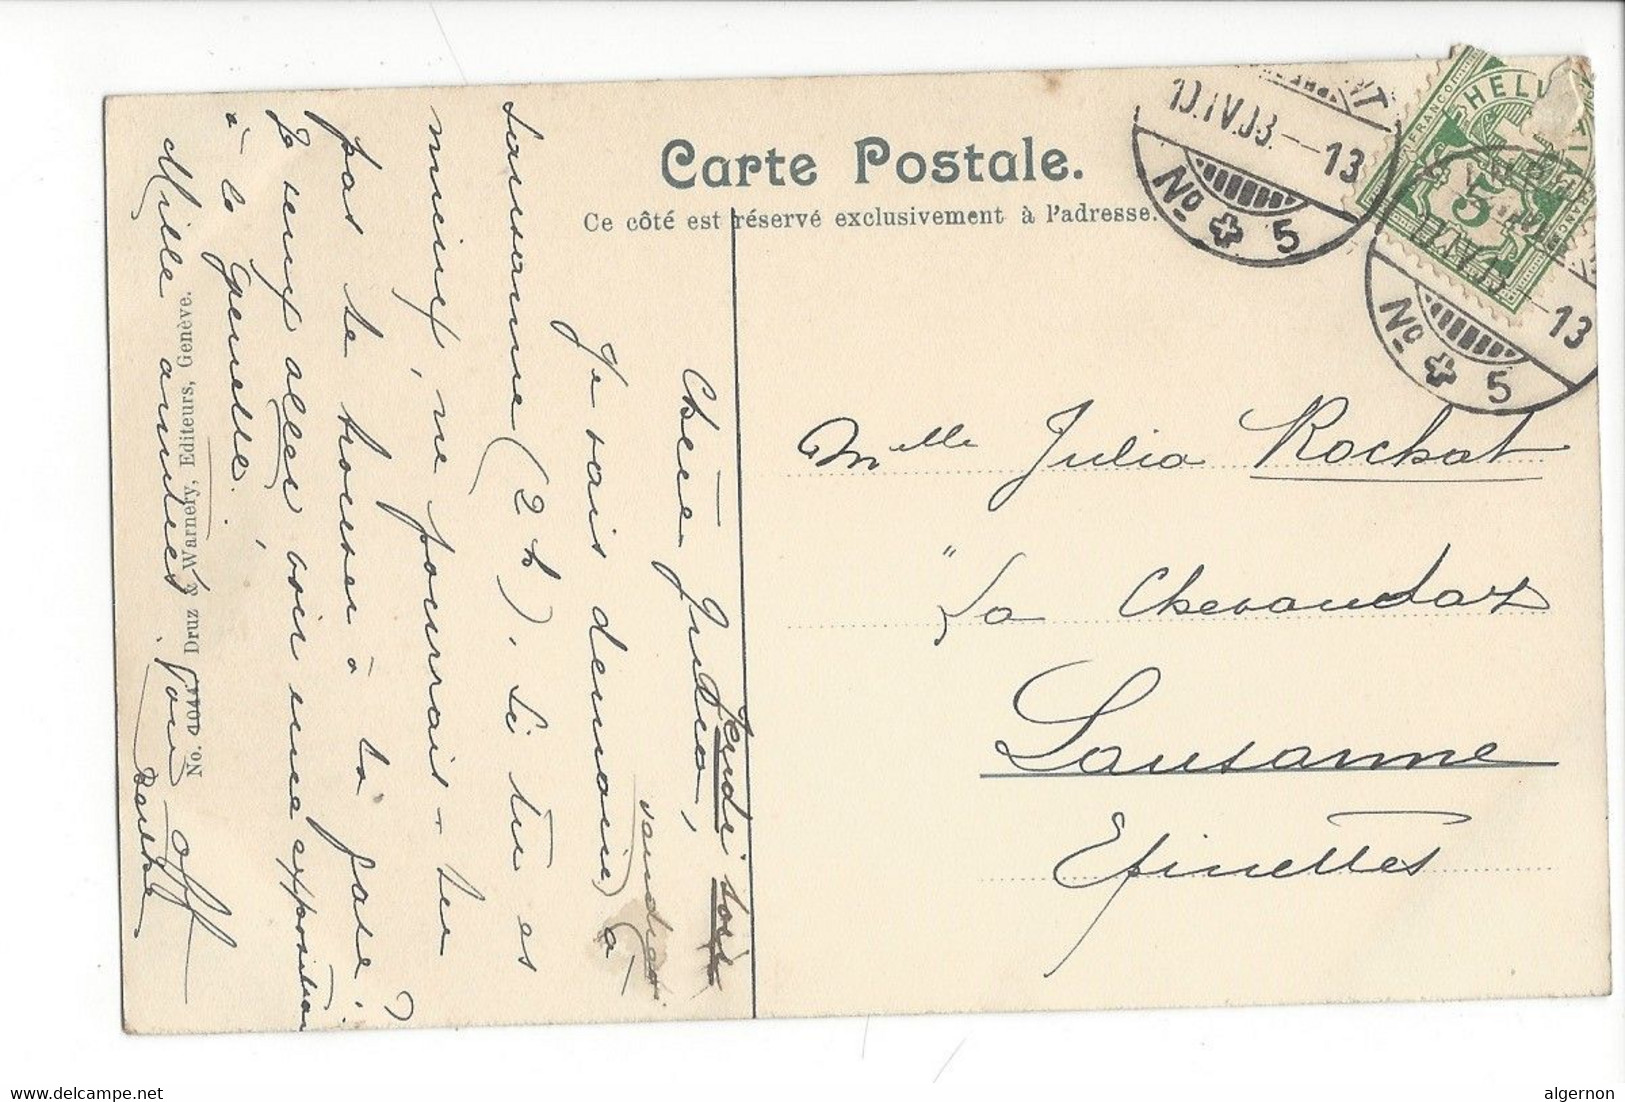 Carte Postale.
Ce côté est réservé exclusivement à l'adresse.
10.IV.03.--13
No 5
HELVETIA
FRANCO
5
13
No 5
Mlle Julia Rochat
"La Chevaudaz
Lausanne
Epinettes
Jeudi soir
Chère Julia,
Je vais demain (à
vendredi
Lausanne (2 h). Si tu es
mieux, ne pourrais-tu
pas te trouver à la gare?
Je veux aller voir une exposition
à la Grenette.
Mille amitiés.
No. 4044 Druz & Warnery, Editeurs, Genève.
algernon